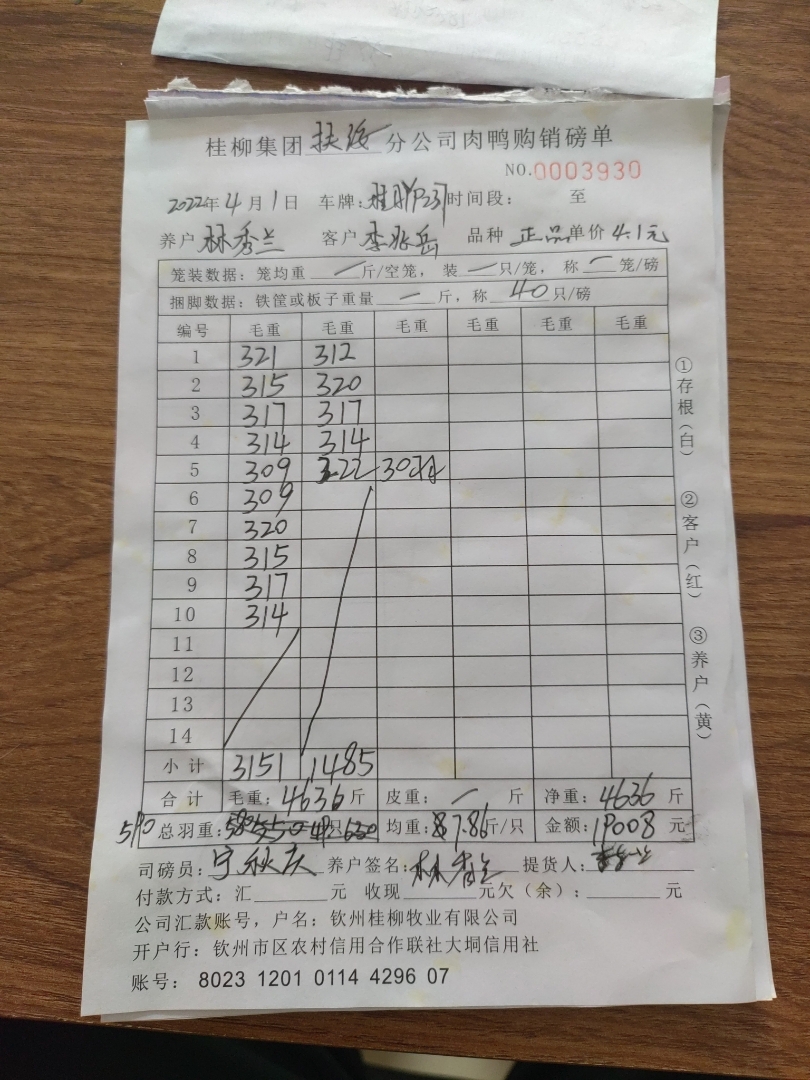 桂柳集团 分公司肉鸭购销磅单
NO.0003930
2022年4月1日 车牌: 时间段: 至
养户 林秀兰 客户 李兆岳 品种 正品 单价 4.1元
笼装数据:笼均重 — 斤/空笼,装 — 只/笼,称 — 笼/磅
捆脚数据:铁筐或板子重量 — 斤,称 40 只/磅
编号 毛重 毛重 毛重 毛重 毛重 毛重
1 321 312
2 315 320
3 317 317
4 314 314
5 309 322 30只
6 309
7 320
8 315
9 317
10 314
11
12
13
14
小计 3151 1485
合计 毛重:4636斤 皮重:— 斤 净重:4636斤
590 总羽重: 只 均重:7.86斤/只 金额:19008元
司磅员:宁秋庆 养户签名:林秀兰 提货人:
付款方式:汇 元 收现 元欠(余): 元
公司汇款账号,户名:钦州桂柳牧业有限公司
开户行:钦州市区农村信用合作联社大垌信用社
账号: 8023 1201 0114 4296 07
①存根(白)
②客户(红)
③养户(黄)